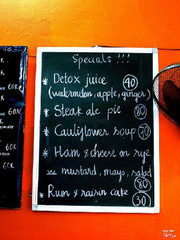 Specials !!!
* Detox juice 40
(watermelon, apple, ginger)
* Steak ale pie 80
* Cauliflower soup 70
* Ham & cheese on rye
mustard, mayo, salad
80
* Rum & raisin cake 30
60K
60K